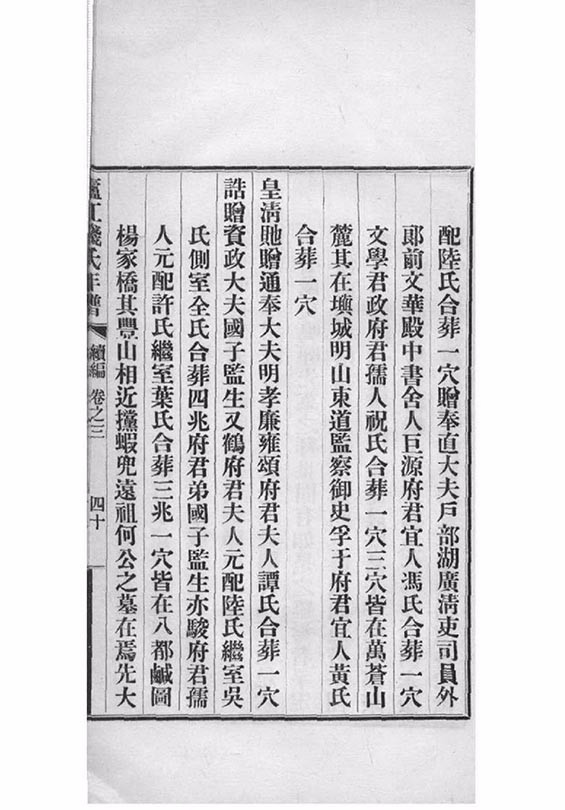 配陸氏合葬一穴贈奉直大夫戶部湖廣清吏司員外
郞前文華殿中書舍人巨源府君宜人馮氏合葬一穴
文學君政府君孺人祝氏合葬一穴三穴皆在萬蒼山
麓其在塡城明山東道監察御史孚于府君宜人黃氏
合葬一穴
皇清貤贈通奉大夫明孝廉雍頌府君夫人譚氏合葬一穴
誥贈資政大夫國子監生又鶴府君夫人元配陸氏繼室吳
氏側室全氏合葬四兆府君弟國子監生亦駿府君孺
人元配許氏繼室葉氏合葬三兆一穴皆在八都鹹圖
楊家橋其豐山相近攩蝦兜遠祖何公之墓在焉先大
廬江錢氏年譜 續編 卷之三 四十